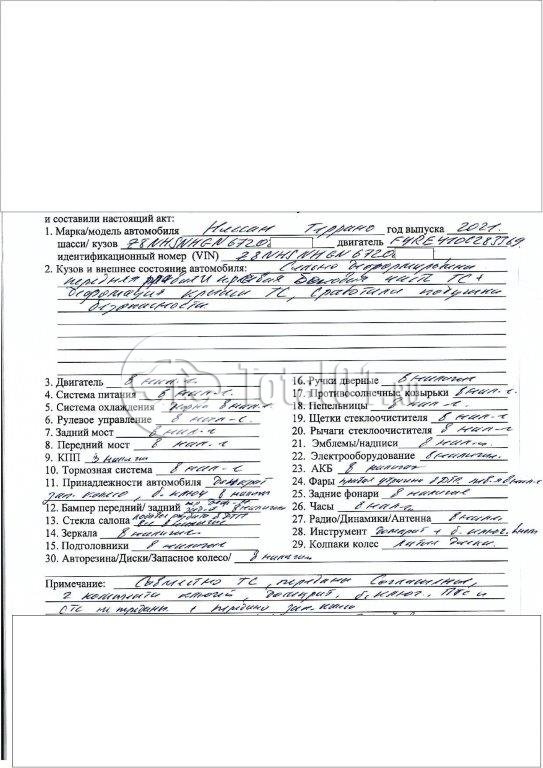 и составили настоящий акт:
1. Марка/модель автомобиля Ниссан Террано год выпуска 2021.
шасси/ кузов Z8NHSNHGN6720 двигатель F4RE410C285569
идентификационный номер (VIN) Z8NHSNHGN6720
2. Кузов и внешнее состояние автомобиля: Сильно деформированы
передняя и правая боковая часть ТС +
деформация крыши ТС, сработали подушки
безопасности.
Total01.ru
3. Двигатель в нал-и.
4. Система питания в нал-и.
5. Система охлаждения в нал-и.
6. Рулевое управление в нал-и.
7. Задний мост в нал-и.
8. Передний мост в нал-и
9. КПП в наличии
10. Тормозная система в нал-и
11. Принадлежности автомобиля домкрат
зап. колесо, б. ключ в наличии
12. Бампер передний/ задний в наличии
13. Стекла салона
14. Зеркала в наличии
15. Подголовники в наличии
30. Авторезина/Диски/Запасное колесо/ в наличии
16. Ручки дверные в наличии
17. Противосолнечные козырьки в нал-и.
18. Пепельницы в нал-и.
19. Щетки стеклоочистителя в нал-и.
20. Рычаги стеклоочистителя в нал-и
21. Эмблемы/надписи в нал-и.
22. Электрооборудование в наличии.
23. АКБ в наличии
24. Фары
25. Задние фонари в наличии
26. Часы в нал-и.
27. Радио/Динамики/Антенна в налич.
28. Инструмент домкрат + б. ключ в нал
29. Колпаки колес литые диски.
Примечание: Совместно ТС, переданы Соглашение,
2 комплекта ключей, домкрат, б. ключ. ПТС и
СТС не переданы + передано зап. колесо